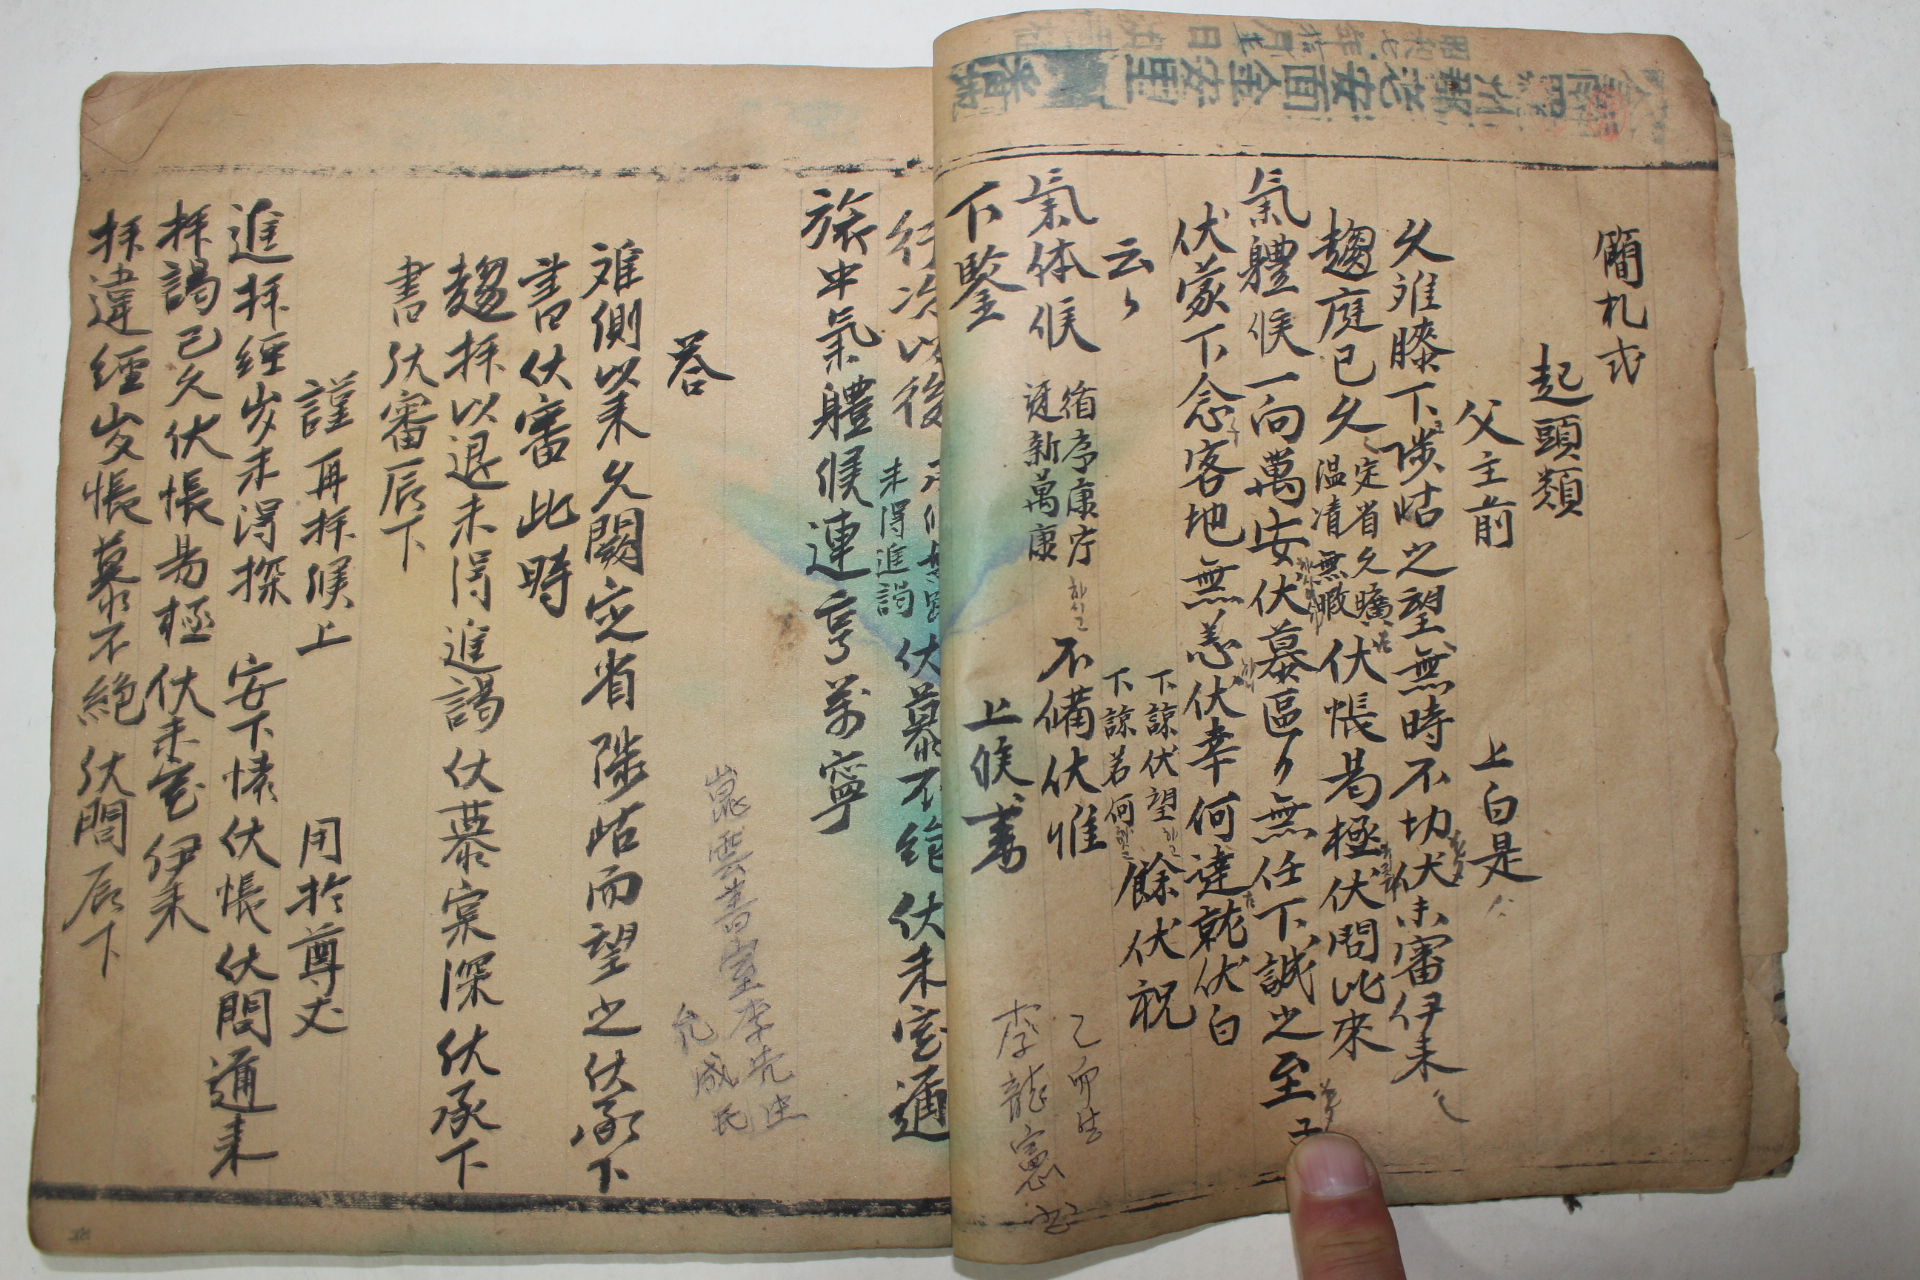 簡札式
起頭類
父主前 上白是
久離膝下陟岵之望無時不切伏未審伊來
趨庭已久 定省久曠 溫凊無暇 伏悵曷極伏問比來
氣體候一向萬安伏慕區々無任下誠之至子
伏蒙下念客地無恙伏幸何達就伏白
云々 下諒伏望 下諒若何 餘伏祝
氣体候 循序康寧 迓新萬康 不備伏惟
下鑒 上候書
乙卯生
李龍憲
行次以後 未得進謁 伏慕不絶伏未審邇
旅中氣體候連享萬寧
答
崑雲書室李先生
允成氏
离側以來久闕定省陟岵而望之伏承下
書伏審此時
趨拜以退未得進謁伏慕冞深伏承下
書伏審辰下
謹再拜候上 用於尊丈
進拜經歲未得探 安下懷伏悵伏問邇來
拜謁已久伏悵曷極伏未審伊來
拜違經歲悵慕不絶伏問辰下